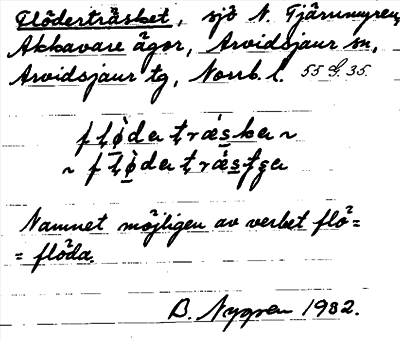 Flöderträsket, sjö N. Tjärnmyren,
Akkavare ägor, Arvidsjaur sn,
Arvidsjaur tg, Norrb. l. 55 d. 35.
flø̀dertrǽska ~
~ flø̀dertrǽstga
Namnet möjligen av verbet flö=
= flöda.
B. Nygren 1932.